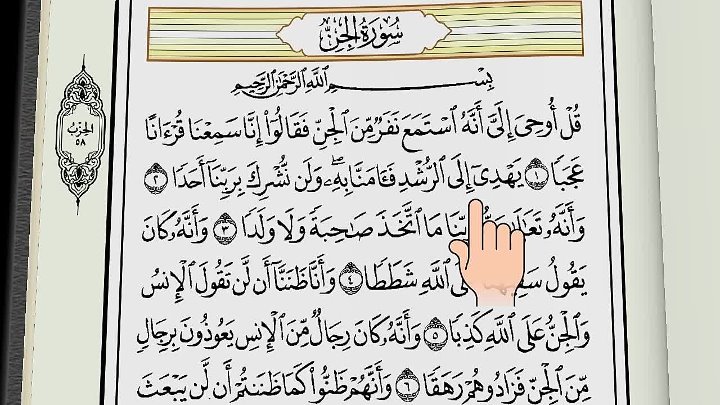 سُورَةُ الجِنِّ
بِسْمِ ٱللَّهِ ٱلرَّحْمَٰنِ ٱلرَّحِيمِ
قُلْ أُوحِىَ إِلَىَّ أَنَّهُ ٱسْتَمَعَ نَفَرٌ مِّنَ ٱلْجِنِّ فَقَالُوٓا۟ إِنَّا سَمِعْنَا قُرْءَانًا
عَجَبًا ١ يَهْدِىٓ إِلَى ٱلرُّشْدِ فَـَٔامَنَّا بِهِۦ ۖ وَلَن نُّشْرِكَ بِرَبِّنَآ أَحَدًا ٢
وَأَنَّهُۥ تَعَٰلَىٰ رَبِّنَا مَا ٱتَّخَذَ صَٰحِبَةً وَلَا وَلَدًا ٣ وَأَنَّهُۥ كَانَ
يَقُولُ ٱللَّهِ شَطَطًا ٤ وَأَنَّا ظَنَنَّآ أَن لَّن تَقُولَ ٱلْإِنسُ
وَٱلْجِنُّ عَلَى ٱللَّهِ كَذِبًا ٥ وَأَنَّهُۥ كَانَ رِجَالٌ مِّنَ ٱلْإِنسِ يَعُوذُونَ بِرِجَالٍ
مِّنَ ٱلْجِنِّ فَزَادُوهُمْ رَهَقًا ٦ وَأَنَّهُمْ ظَنُّوا۟ كَمَا ظَنَنتُمْ أَن لَّن يَبْعَثَ
الحِزْبُ
٥٨